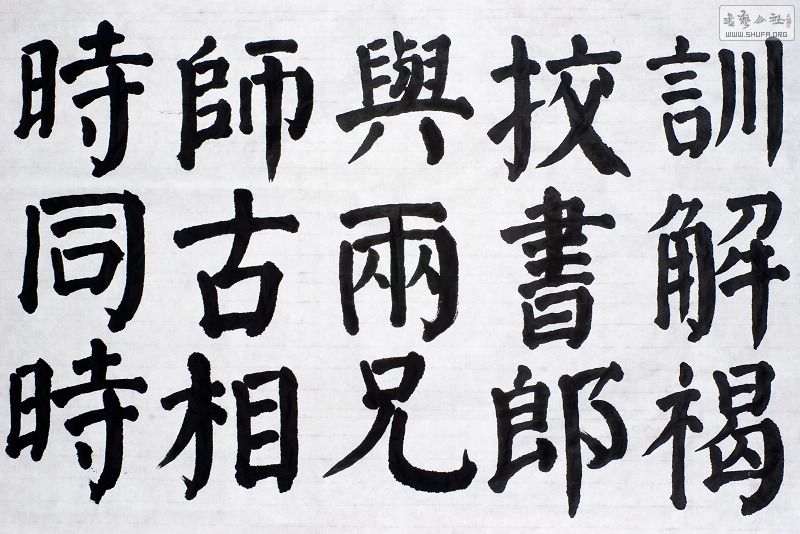 訓解褐
挍書郎
與兩兄
師古相
時同時
書藝公社
WWW.SHUFA.ORG